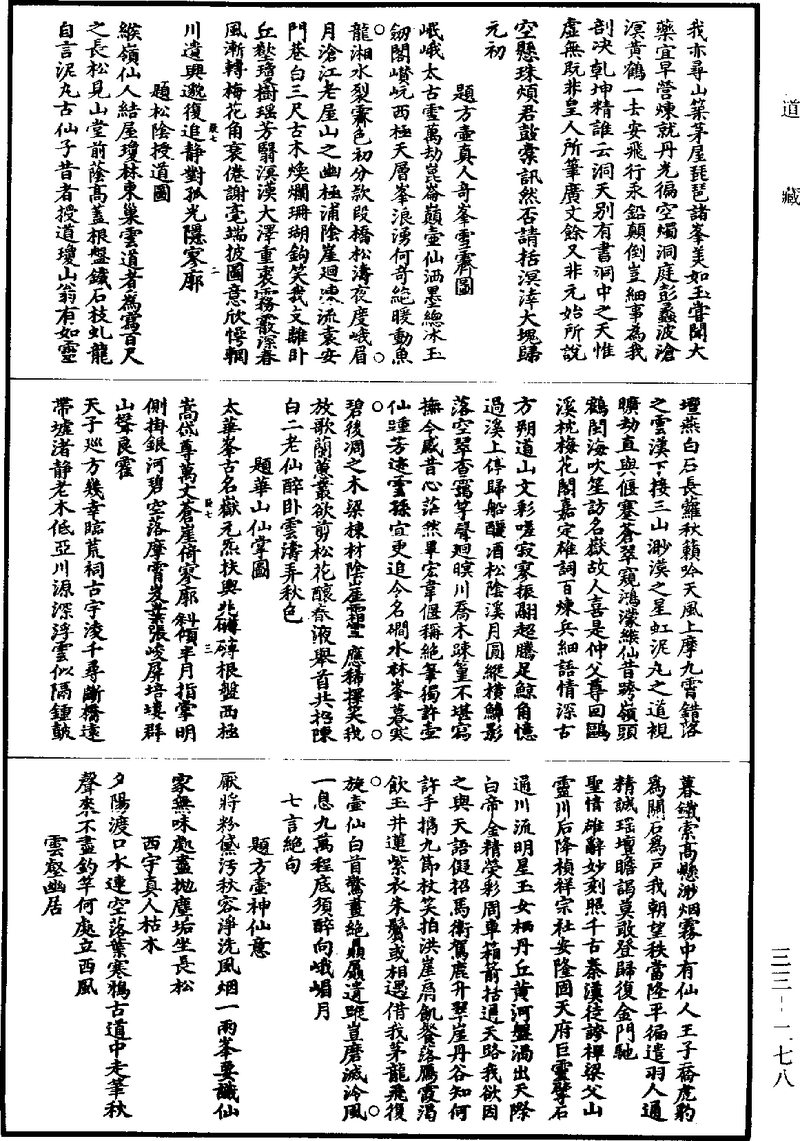 道藏
我亦尋山築茅屋琵琶諸峯美如玉嘗聞大
藥宜早營煉就丹光徧空燭洞庭彭蠡波滄
溟黃鶴一去安飛行汞鉛顛倒豈細事為我
剖決乾坤精誰云洞天別有書洞中之天惟
虛無既非皇人所筆廣文餘又非元始所說
空懸珠煩君鼓橐訊然否請括溟涬大塊歸
元初
題方壺真人奇峯雪霽圖
峨峨太古雪萬劫崑崙巔壺仙洒墨總冰玉
劒閣巑岏西極天層峯浪湧何奇絕暖動魚
龍湘水裂霽色初分款段橋松濤夜度峨眉
月滄江老屋山之幽極浦陰崖迴凍流袁安
門巷白三尺古木煥爛珊瑚鉤笑我文離卧
丘壑瓊樹瑶芳翳溟漠大澤重裘霧霰深春
風漸轉梅花角衰倦謝毫端披圖意欣愕輞
川遺興邈復追静對孤光隱寥廓
題松陰授道圖
緱嶺仙人結屋瓊林東巢雲道者為寫百尺
之長松見山堂前蔭高蓋根盤鐵石枝虬龍
自言泥丸古仙子昔者授道瓊山翁有如靈
壇燕白石長蘿秋籟吟天風上摩九霄錯落
之雲漢下接三山渺漠之星虹泥丸之道視
曠劫直與偃蹇蒼翠窺鴻濛緱仙昔跨嶺頭
鶴閬海吹笙訪名嶽故人喜是仲父尊回鷗
溪枕梅花閣嘉定雄詞百煉兵細語情深古
方朔道山文彩嗟寂寥振翮超騰足鯨角憶
過溪上停歸船釃酒松陰溪月圓縱橫鱗影
落空翠杳靄竽聲廻暝川喬木疎篁不堪寫
撫今感昔心茫然畢宏韋偃稱絕筆獨許壺
仙踵芳逸雲孫宜更追今名磵水林峯暮寒
碧後凋之木梁棟材陰崖雪壑應稀擇笑我
放歌蘭蕙叢欲剪松花釀春液舉首共招陳
白二老仙醉卧雲濤弄秋色
題華山仙掌圖
太華峯古名嶽元炁扶輿兆磚礴根盤西極
嵩岱尊萬丈蒼崖倚寥廓斜傾半月指掌明
側掛銀河碧空落摩霄岌嶪張峻屏培塿群
山聳良霍
天子巡方幾幸臨荒祠古字淩千尋斷橋遠
帶墟渚静老木低亞川源深浮雲似隔鍾皷
暮鐵索高懸渺烟霧中有仙人王子喬虎豹
為關石為戶我朝望秩當隆平徧遣羽人通
精誠瑶壇瞻謁莫敢登歸復金門馳
聖情雄辭妙刻照千古秦漢徒誇禪梁父山
靈川后降禎祥宗社安隆固天府巨靈擘石
通川流明星玉女栖丹丘黃河盤渦出天際
白帝金精熒彩周車箱箭括通天路我欲因
之與天語儗招馬衛駕鹿升翠崖丹谷知何
許手攜九節杖笑拍洪崖肩飢餐落鴈霞渴
飲玉井蓮紫衣朱鬟或相遇借我茅龍飛復
旋壺仙白首驚畫絕贔屭遺蹤豈磨滅泠風
一息九萬程底須醉向峨嵋月
七言絕句
題方壺神仙意
厭將粉黛污秋容淨洗風烟一兩峯要識仙
家無味處盡拋塵垢坐長松
西宇真人枯木
夕陽渡口水連空落葉寒鴉古道中走筆秋
聲來不盡釣竿何處立西風
雲壑幽居
三三-一七八